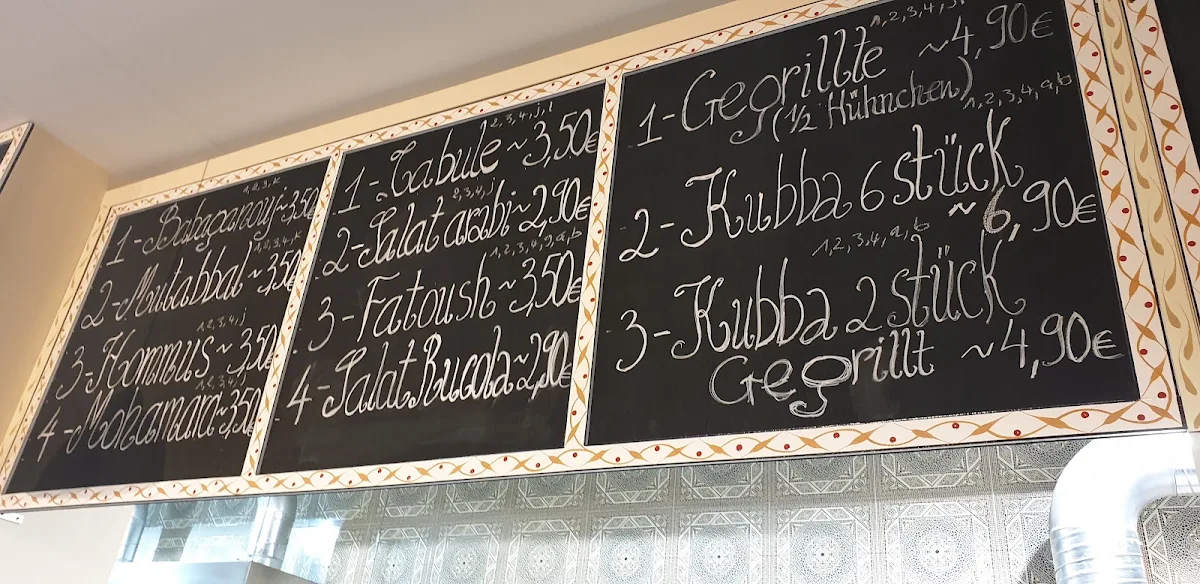 1,2,3,k
1-Babaganoy~3,50
1,2,3,4,k
2-Mutabbal~3,50
1,2,3,4,j
3-Hommus~3,50
1,2,3,4,j
4-Mohamara~3,50
2,3,4,j,l
1-Tabule~3,50€
2,3,4,j
2-Salat arabi~2,90€
1,2,3,4,g,a,b
3-Fatoush~3,50€
4-Salat Rucola~2,90€
1,2,3,4,j
1-Gegrillte ~4,90€
(1/2 Hühnchen)
1,2,3,4,a,b
2-Kubba 6 stück
~6,90€
1,2,3,4,a,b
3-Kubba 2 stück
Gegrillt ~4,90€